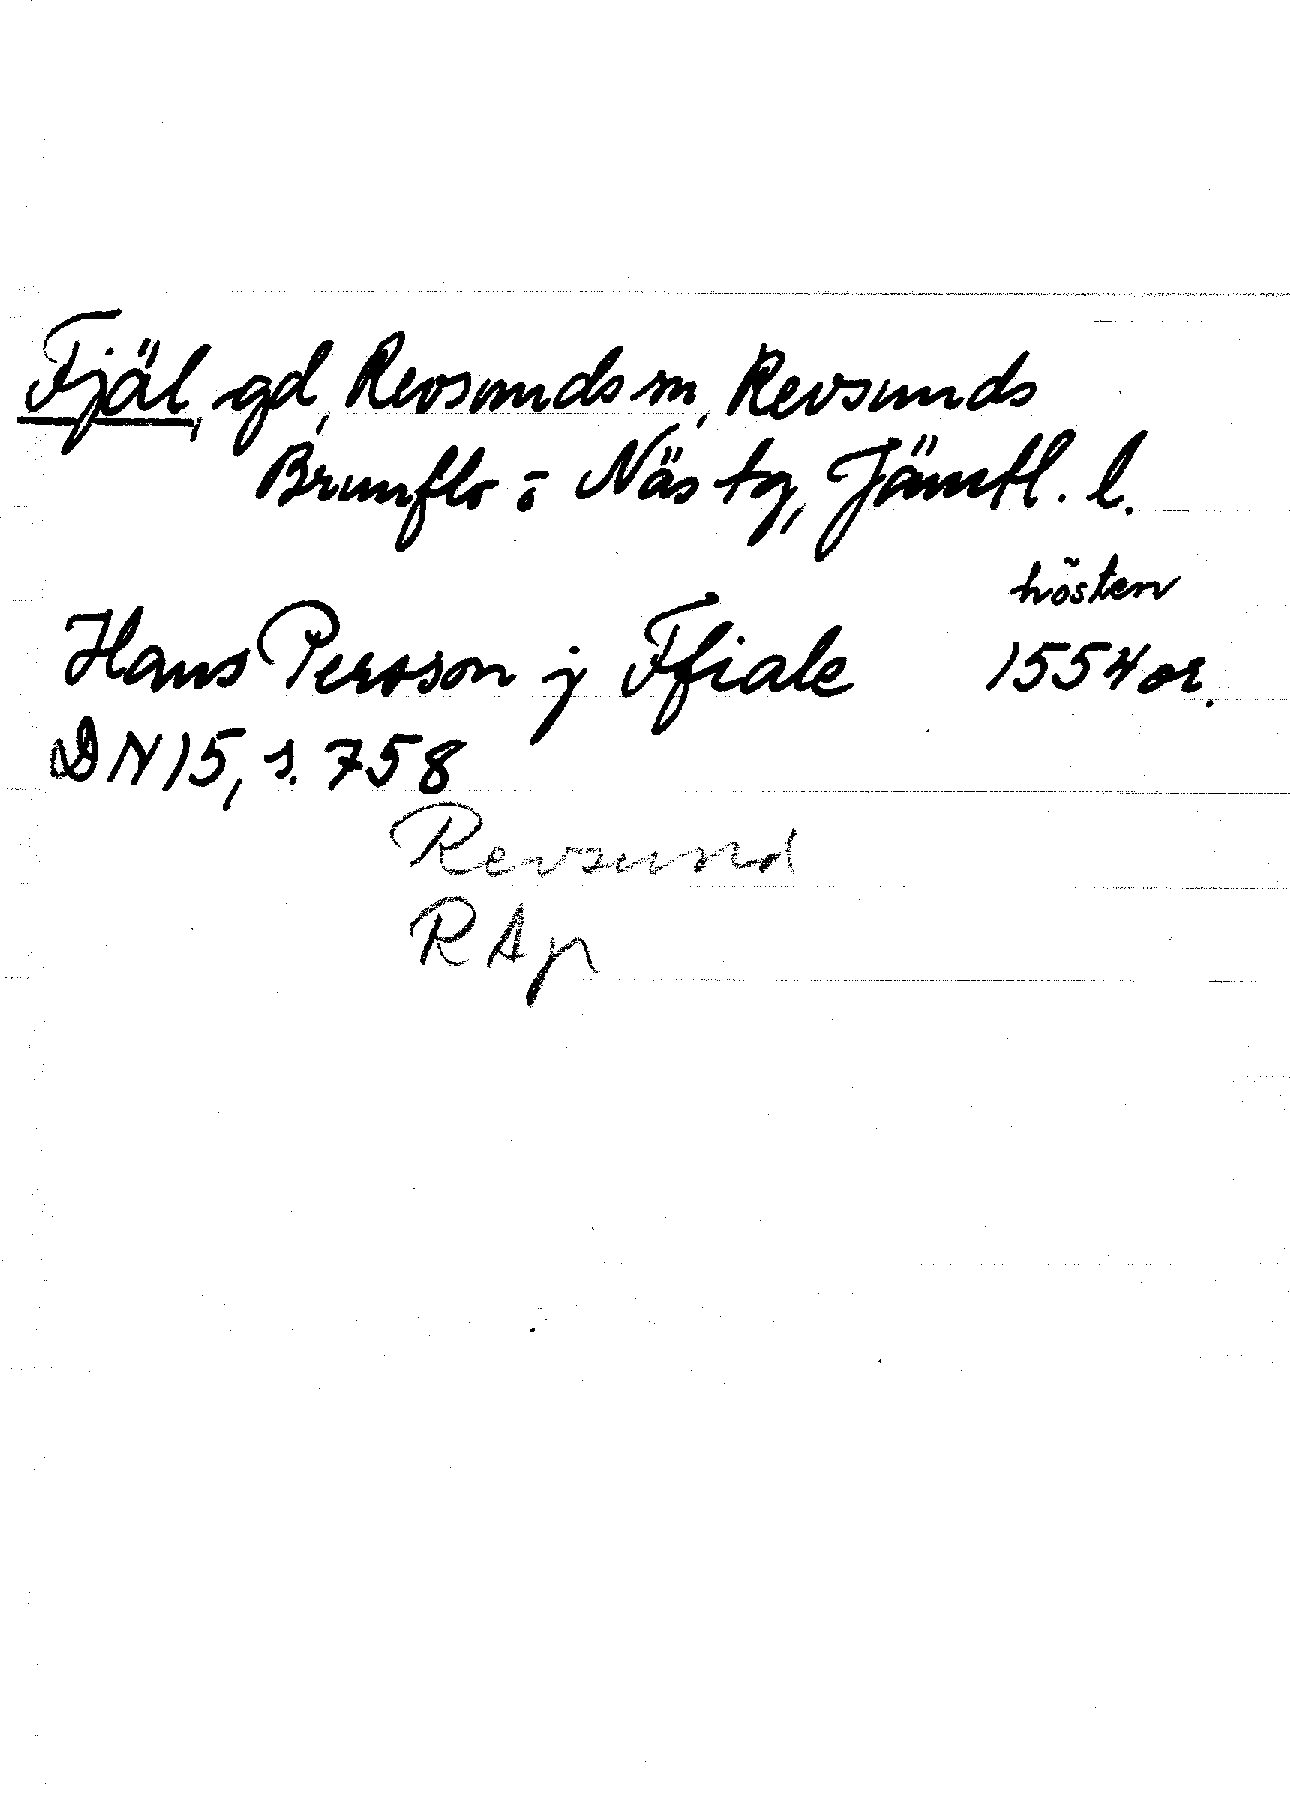 Fjäl, gd, Revsunds sn, Revsunds
Brunflo o Näs tg, Jämtl. l.
hösten
Hans Persson j Ffiale 1554 or.
DN 15, s. 758
Revsund
RAp